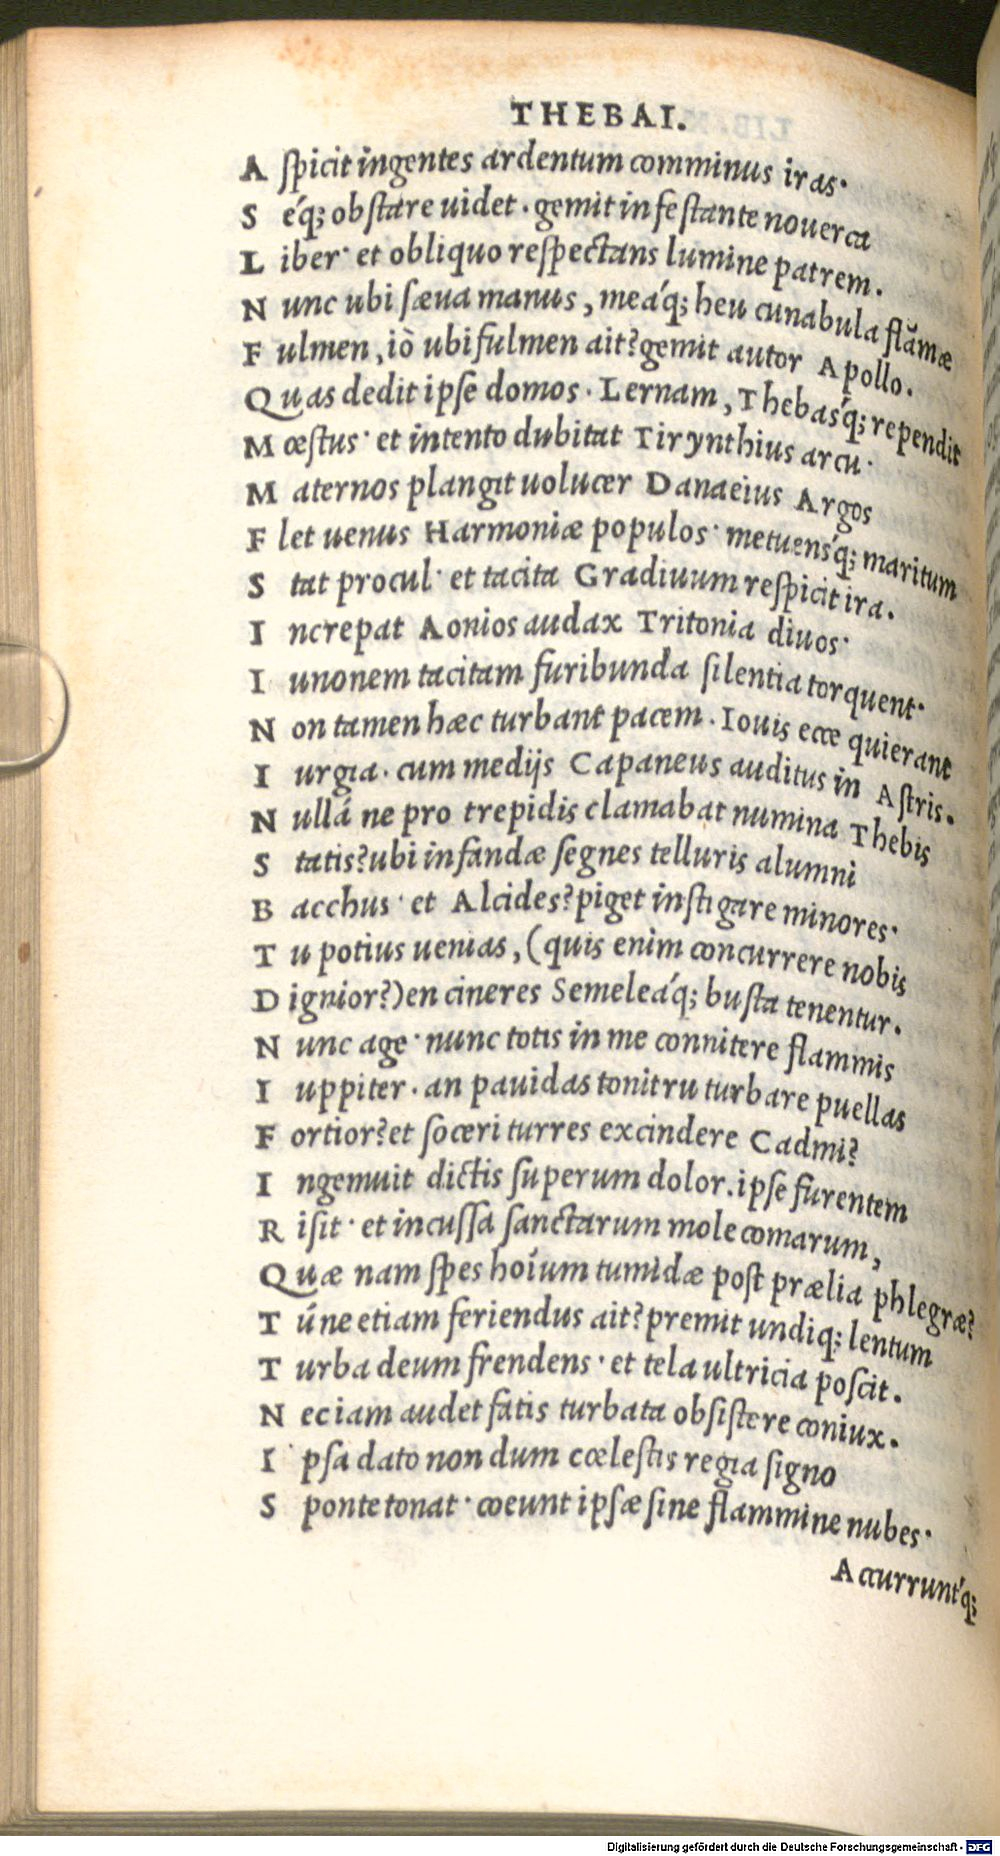 THEBAI.
A ſpicit ingentes ardentum comminus iras·
S éq; obſtare uidet. gemit infeſtante nouerca
L iber· et obliquo reſpectans lumine patrem.
N unc ubi ſæua manus, meáq; heu cunabula flãmæ
F ulmen, iò ubi fulmen ait? gemit autor Apollo.
Q uas dedit ipſe domos· Lernam, Thebasq́; rependit
M œſtus· et intento dubitat Tirynthius arcu·
M aternos plangit uolucer Danaeius Argos
F let uenus Harmoniæ populos· metuensq́; maritum
S tat procul· et tacita Gradiuum reſpicit ira.
I ncrepat Aonios audax Tritonia diuos·
I unonem tacitam furibunda ſilentia torquent·
N on tamen hæc turbant pacem. Iouis ecce quierant
I urgia· cum medijs Capaneus auditus in Aſtris.
N ullá ne pro trepidis clamabat numina Thebis
S tatis? ubi infandæ ſegnes telluris alumni
B acchus· et Alcides? piget inſtigare minores·
T u potius uenias, (quis enim concurrere nobis
D ignior?) en cineres Semeleáq; buſta tenentur.
N unc age· nunc totis in me connitere flammis
I uppiter. an pauidas tonitru turbare puellas
F ortior? et ſoceri turres excindere Cadmi?
I ngemuit dictis ſuperum dolor. ipſe furentem
R iſit· et incuſſa ſanctarum mole comarum,
Q uæ nam ſpes hoíum tumidæ poſt prælia phlegræ?
T úne etiam feriendus ait? premit undiq; lentum
T urba deum frendens· et tela ultricia poſcit.
N ec iam audet fatis turbata obſiſtere coniux.
I pſa dato non dum cœleſtis regia ſigno
S ponte tonat· coeunt ipſæ ſine flammine nubes·
Accurruntq́;
Digitalisierung gefördert durch die Deutsche Forschungsgemeinschaft - DFG